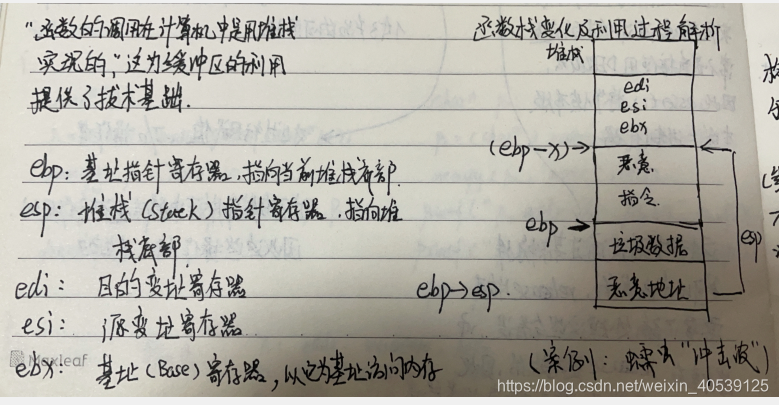 "函数的调用在计算机中是用堆栈
实现的,"这为缓冲区的利用
提供了技术基础.
ebp: 基址指针寄存器,指向当前堆栈底部.
esp: 堆栈(Stack)指针寄存器,指向堆
栈底部.
edi: 目的变址寄存器
esi: 源变址寄存器
ebx: 基址(Base)寄存器,以它为基址访问内存
函数栈变化及利用过程解析
堆栈
edi
esi
ebx
(ebp-x)→
恶意
指令
ebp →
垃圾数据
ebp→esp.
恶意地址
esp
(案例: 蠕虫"冲击波")
Maxleaf
https://blog.csdn.net/weixin_40539125